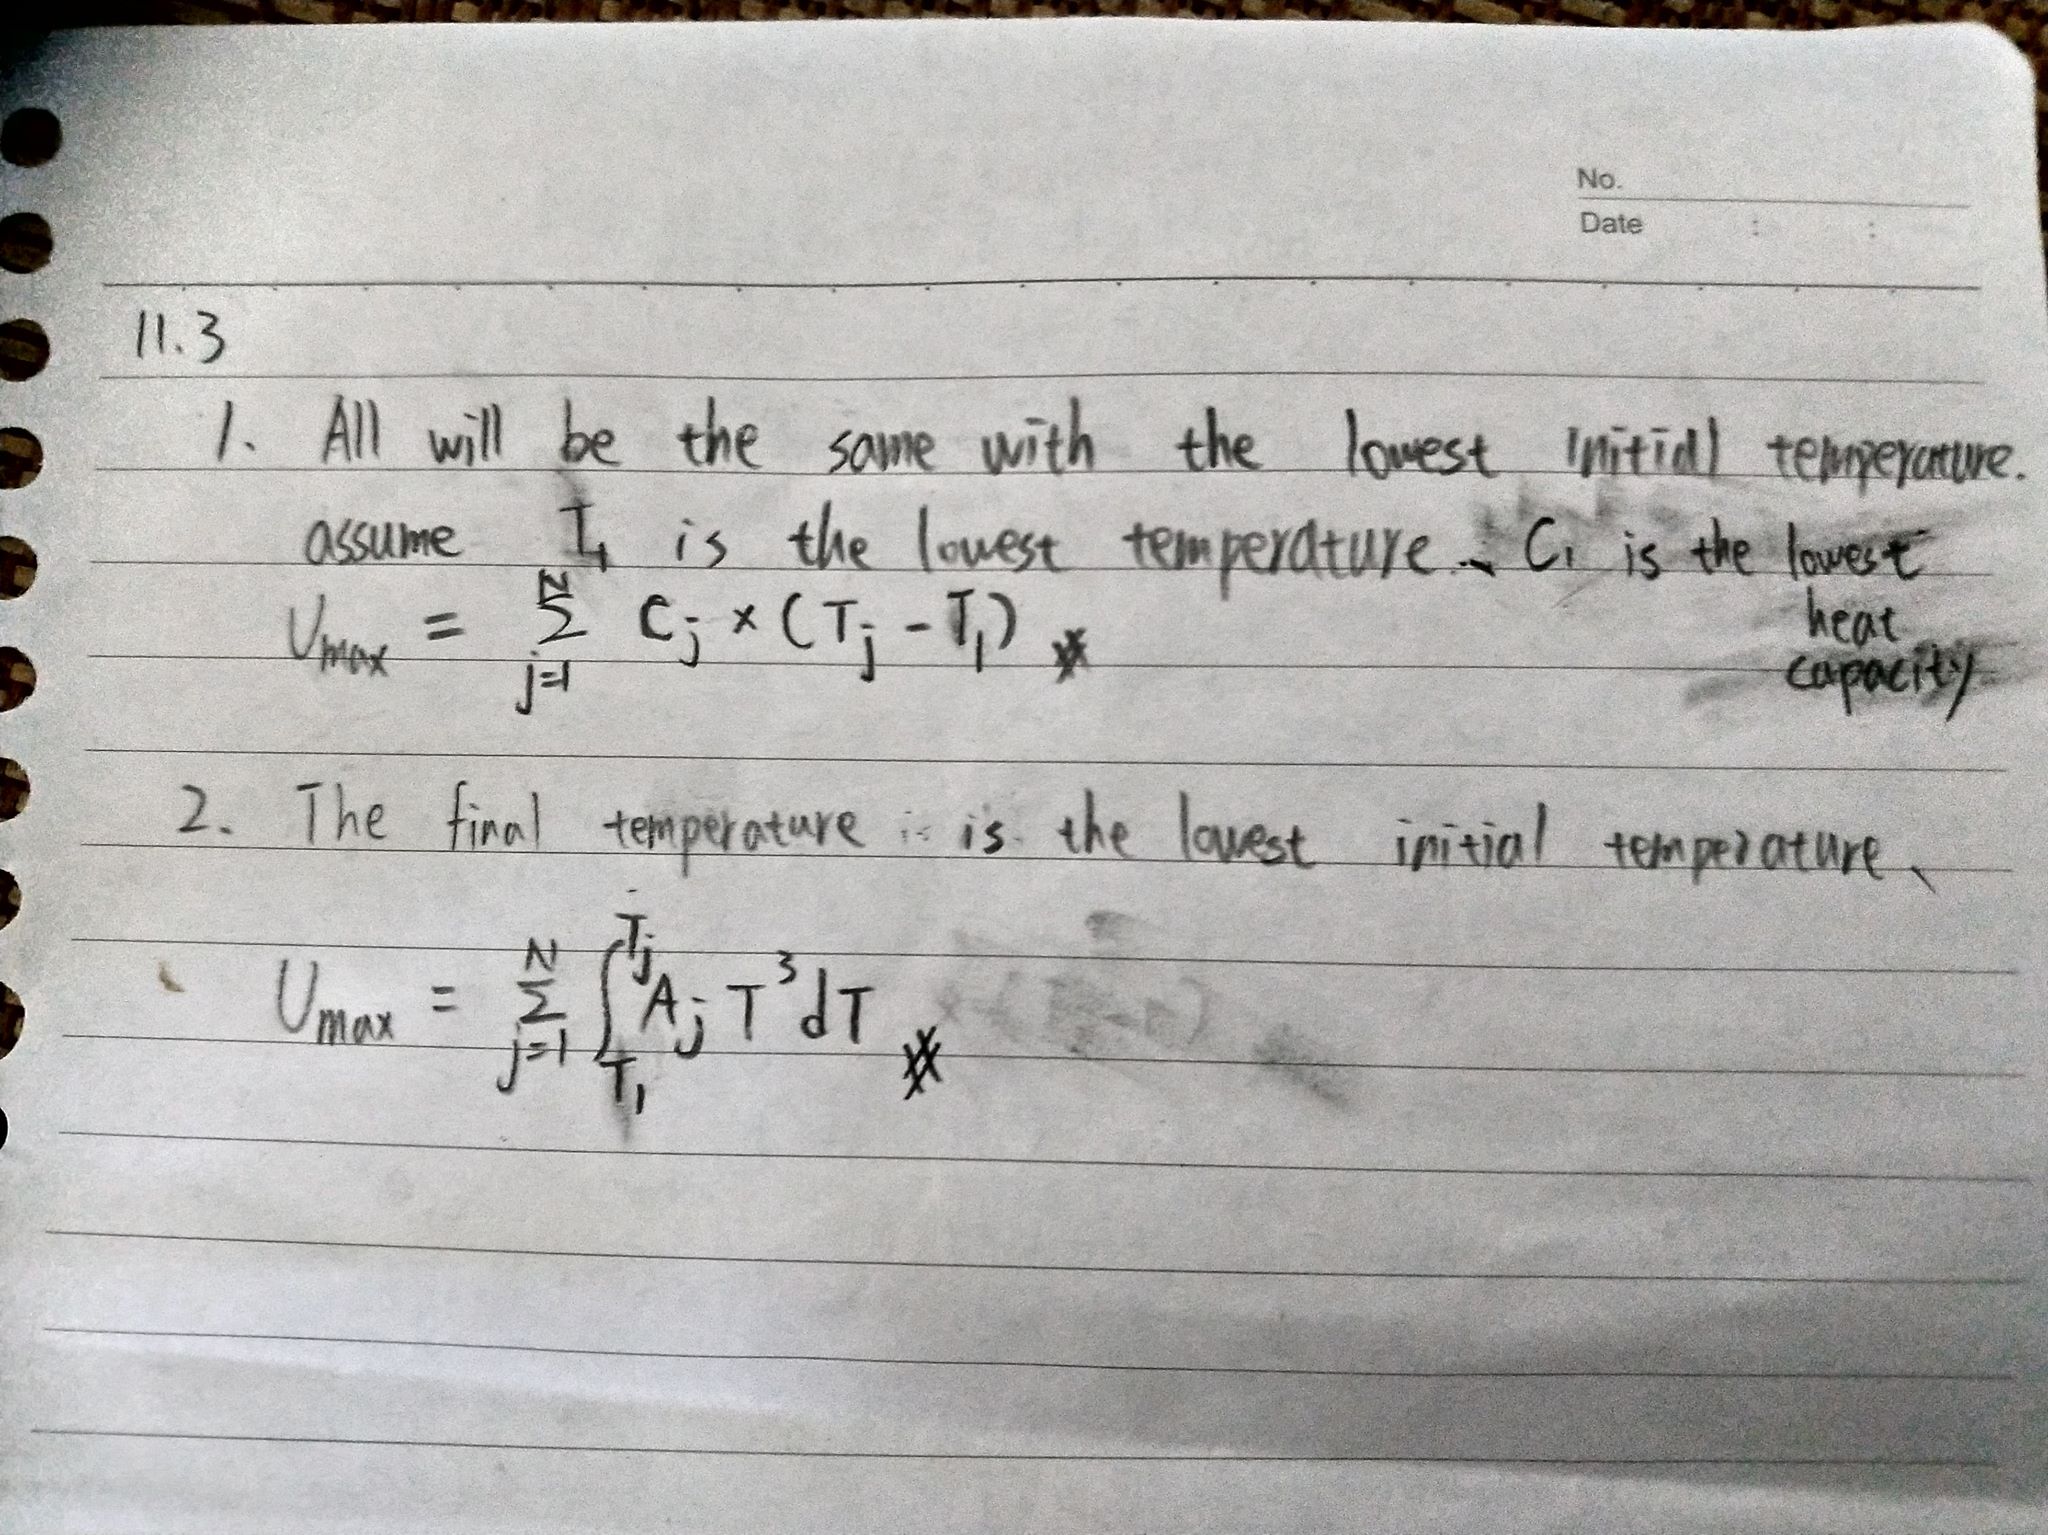 No.
Date : :
11.3
1. All will be the same with the lowest initial temperature.
assume T₁ is the lowest temperature、 C₁ is the lowest
heat
capacity
Umax = N Σ j=1 Cj × (Tj - T₁) ※
2. The final temperature is the lowest initial temperature、
Umax = N Σ j=1 ∫ Tj T₁ Aj T³ dT ※